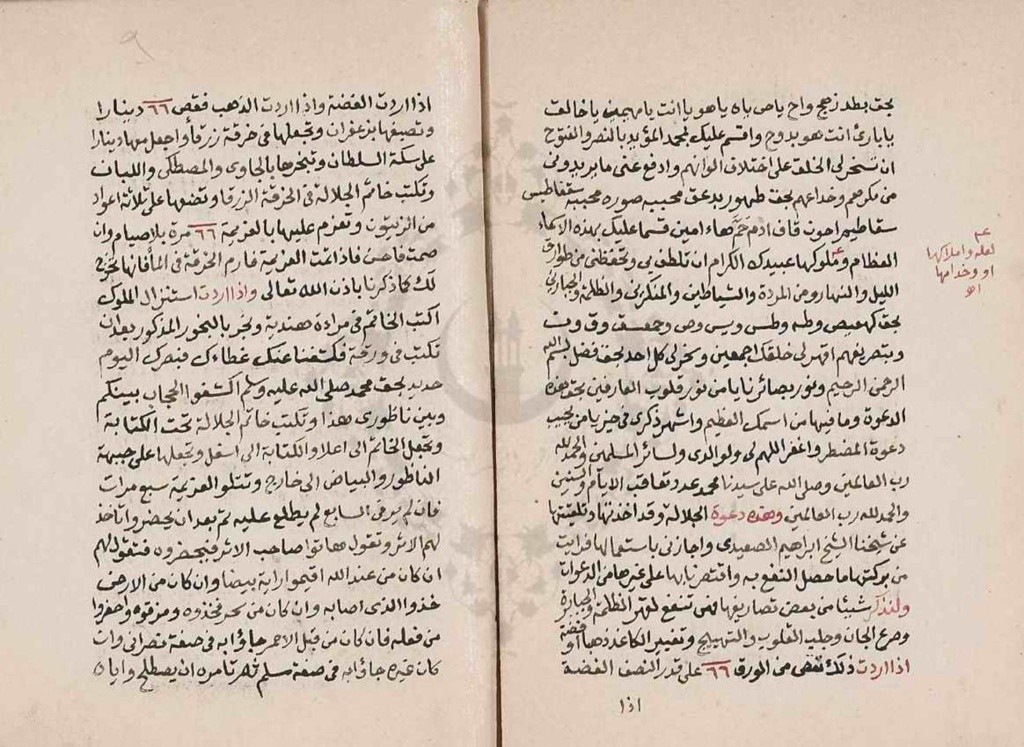 بحق بطد زهج واح ياص ياه ياهو يا انت يامهيمن ياخالق
يابارئ انت هو بدوح واقسم عليك بمحمد المؤيد بالنصر والفتوح
ان تسخر لى الخلق على اختلاف الوانهم وادفع عنى مايريدونى
من مكرهم وخداعهم بحق طهور بدعق محببه صوره محببه سقفاطيس
سقاطيم احون قاف ادم حم هاء امين قسما عليك بهذه الاسماء
العظام وملوكها عبيدك الكرام ان تلطف بى وتحفظنى من طوارق
الليل والنهار ومن المردة والشياطين والمتكبرين والظلمة والجبارين
بحق كهيعص وطه وطس ويس وص وحمعسق وق ون
وبتصريفهم اقهر لى خلقك اجمعين وسخر لى كل احد بحق فضل بسم الله
الرحمن الرحيم ونور بصائرنا يامن نور قلوب العارفين بحق هذه
الدعوة وما فيها من اسمك العظيم واشهر ذكرى فى خير يامن يجيب
دعوة المضطر واغفر اللهم لى ولوالدى ولسائر المسلمين والحمد لله
رب العالمين وصلى الله على سيدنا محمد عدد تعاقب الايام والسنين
والحمد لله رب العالمين وهذه دعوة الجلالة وقد اخذتها وتلقيتها
عن شيخنا الشيخ ابراهيم الصعيدى واجازنى باستعمالها فرايت
من بركتها ما حصل النفع به واقتصرنا بها على غيرها من الدعوات
ولنذكر شيئا من بعض تصاريفها فهى تنفع لقهر الظلمة والجبابرة
وصرع الجان وجلب القلوب والتهييج وتغيير الكاغد ذهبا او فضة
اذا اردت ذلك تقص من الورق ٦٦ على قدر النصف الفضة
اذا
لعله واملاكها
او وخدامها
اه
٩
اذا اردت الفضة واذا اردت الذهب فقص ٦٦ دينارا
وتصبغها بزعفران وتجعلها فى خرقة زرقا واجعل مها دينارا
على سكة السلطان وتبخرها بالجاوى والمصطكى واللبان
وتكتب خاتم الجلالة فى الخرقة الزرقا وتضعها على ثلاثة اعواد
من الزيتون وتعزم عليها بالعزيمة ٦٦ مرة بلا صيام وان
صمت فاحسن فاذا تمت العزيمة فارم الخرقة فى الما فانها تخرج
لك كما ذكرنا باذن الله تعالى واذا اردت استنزال الملوك
اكتب الخاتم فى مراءة هندية وبخر بالبخور المذكور بعد ان
تكتب فى ورقة فكشفنا عنك غطاءك فبصرك اليوم
حديد بحق محمد صلى الله عليه وسلم اكشفوا الحجاب بينكم
وبين ناظورى هذا وتكتب خاتم الجلالة تحت الكتابة
وتجعل الخاتم الى اعلا والكتابة الى اسفل وتجعلها على جبهة
الناظور والبياض الى خارج وتتلو العزيمة سبع مرات
فان لم ير فى السابع لم يطلع عليه ثم بعد ان يحضروا تاخذ
لهم الاثر وتقول هاتوا صاحب الاثر فيحضروه فتقول لهم
ان كان من عند الله اقيموا راية بيضا وان كان من الارض
خذوا الذى اصابه وان كان من سحر فخذوه ومزقوه واحضروا
من فعله فان كان من قبل الاحمر جاؤا به فى صفة نصرانى وان
كان غيره جاؤا به فى صفة مسلم ثم تامره ان يصطلح واياه